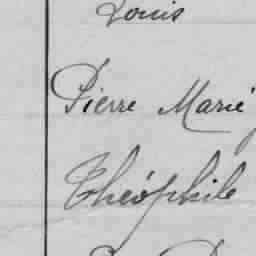 Louis
Pierre Marie
Théophile